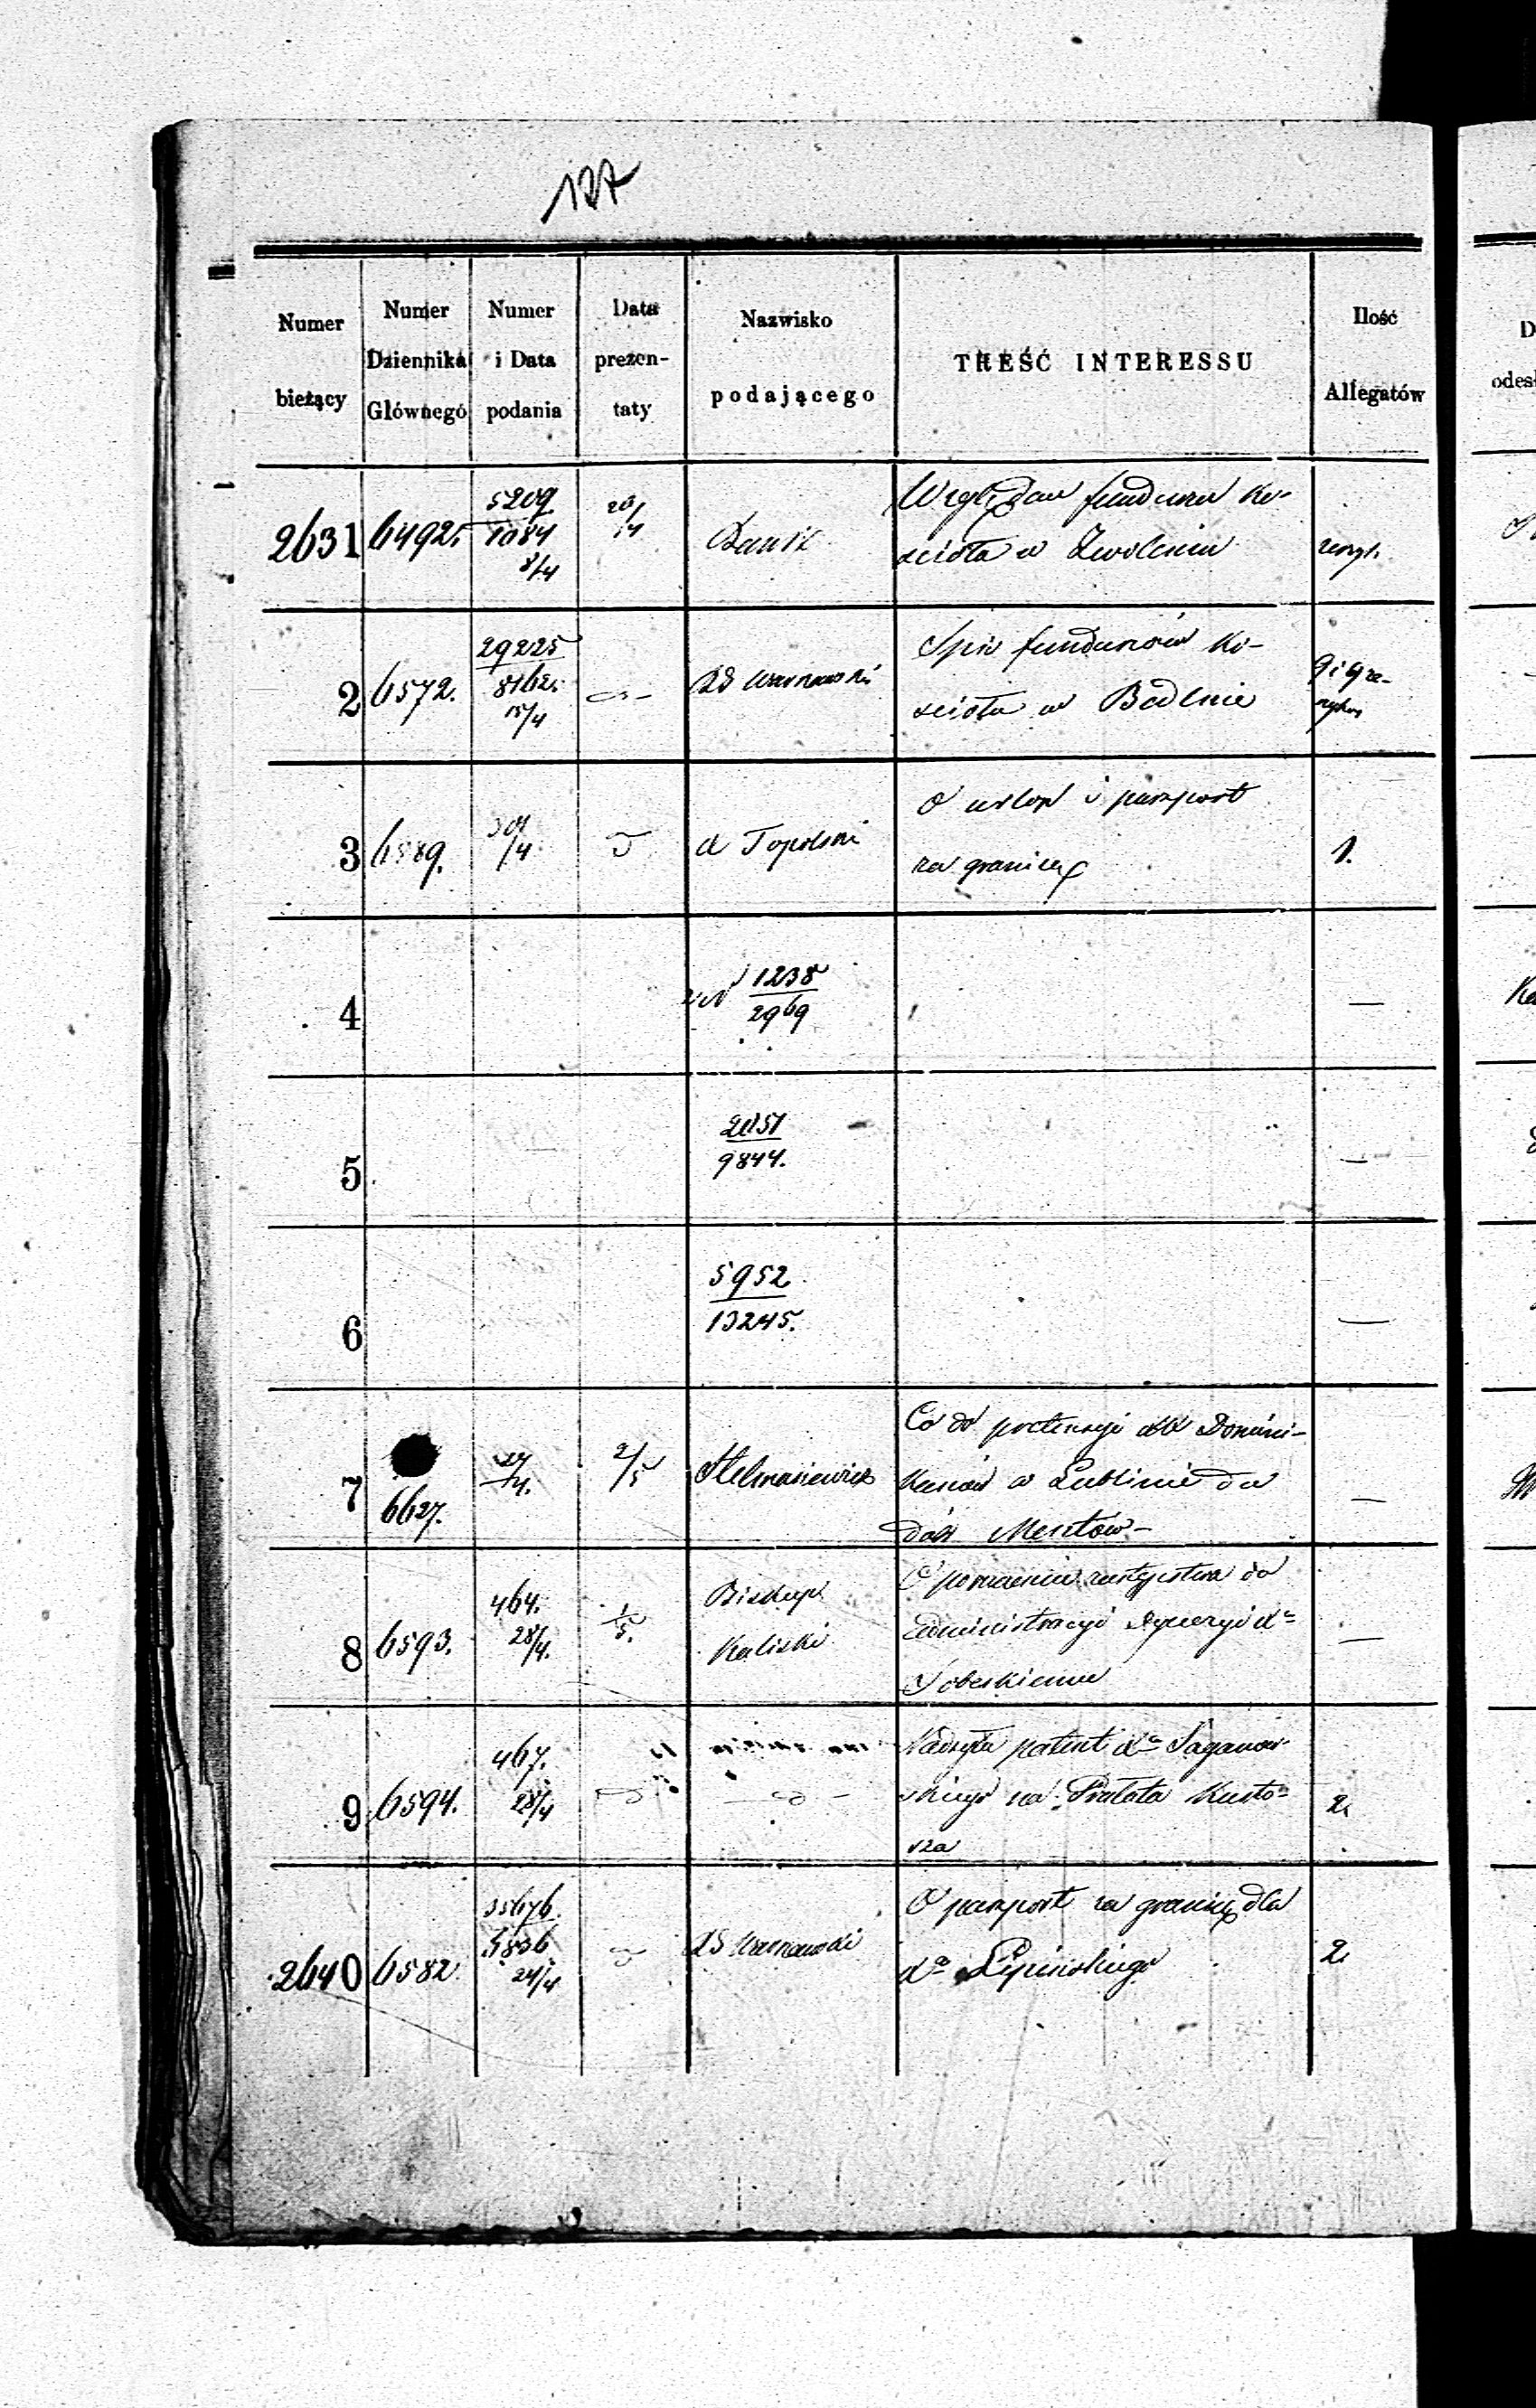 127
Numer bieżący
Numer Dziennika Głównego
Numer i Data podania
Data prezentaty
Nazwisko podającego
TREŚĆ INTERESSU
Ilość Allegatów
2631 6492. 5209 20/4 Bank
1084
8/4
Względem funduszu ko-
ścioła w Zwoleniu
2 6572. 29225
8162.
15/4
Spis funduszów ko-
ścioła w Bedlnie
3 6589. /4 X Topolski
O urlop i paszport
za granicę
1.
4
1238
2969
—
5
2051
9844.
—
6
5952
13245.
—
7 6627. 27/4. 2/5 Stelmasiewicz
Co do pretensyi XX Domini-
kanów w Lublinie do
dóbr
—
8 6593. 464. 28/4. 1/5. Biskup
Kaliski
administracyi Dyecezyi Xa
Sobeskiemu
—
9 6594. 467. 28/4
Nadsyła patent Xa Saganow-
skiego na Prałata Kusto-
sza
2.
2640 6582 35676.
5836
24/4
O paszport za granicę dla
Xa Lipińskiego
2.